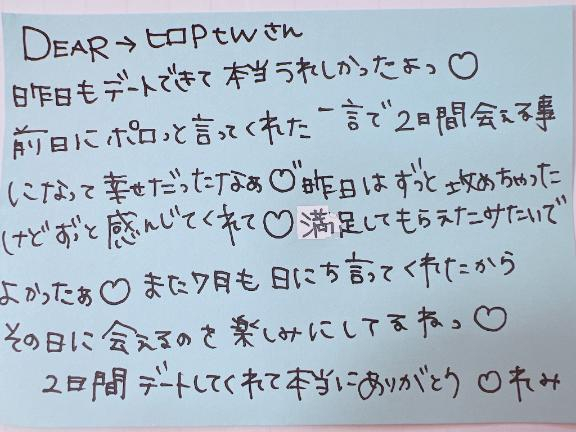 DEAR→ヒロPtwさん
昨日もデートできて本当うれしかったよっ♡
前日にポロっと言ってくれた一言で2日間会える事
になって幸せだったなぁ♡昨日はずっと攻めちゃった
けどずっと感んじてくれて♡満足してもらえたみたいで
よかったぁ♡また7月も日にち言ってくれたから
その日に会えるのを楽しみにしてるねっ♡
2日間デートしてくれて本当にありがとう♡れみ